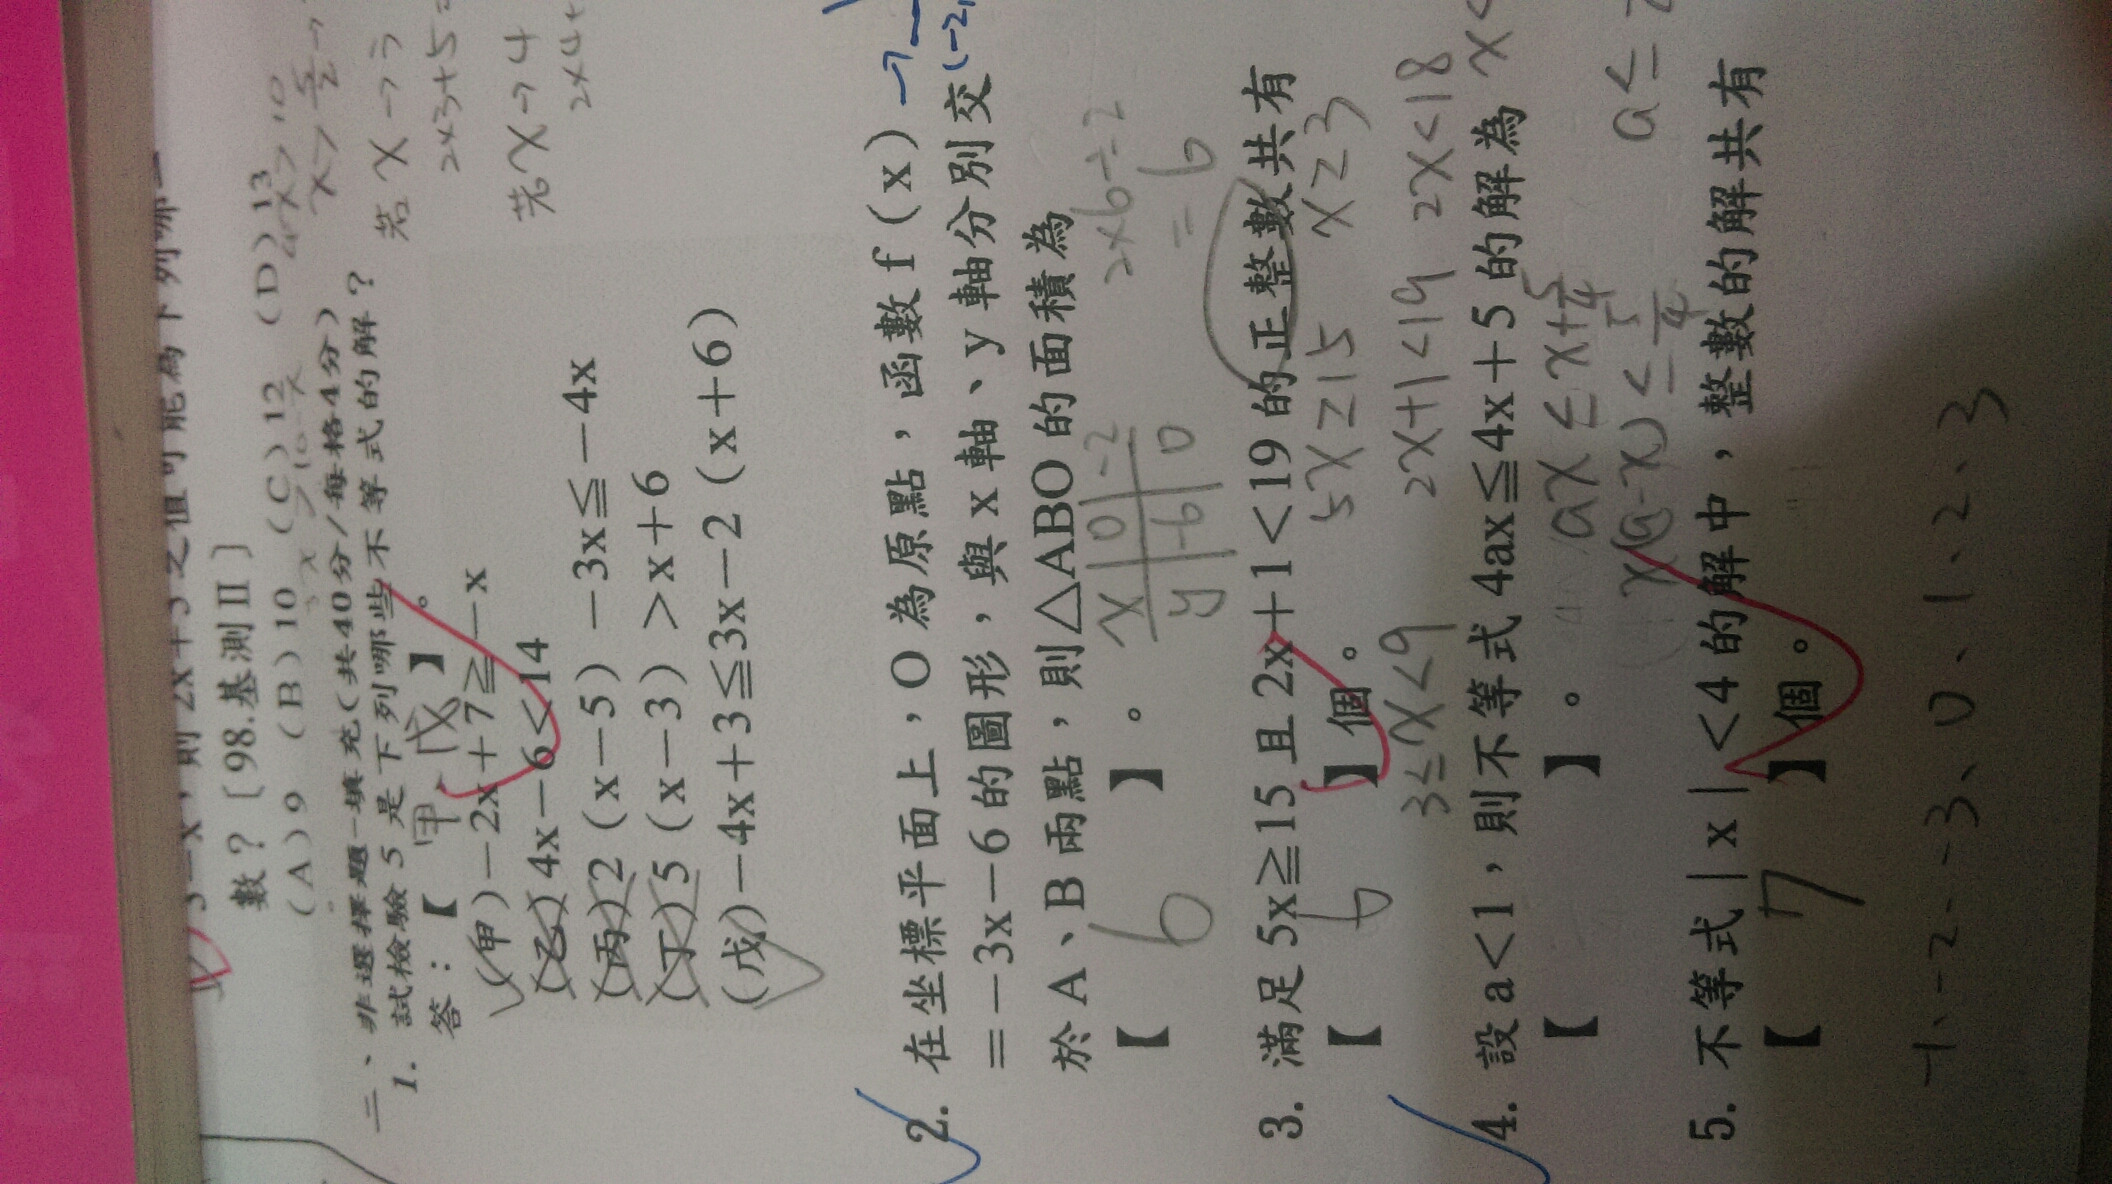 數?〔98.基測Ⅱ〕
(A)9 (B)10 (C)12 (D)13
二、非選擇題-填充(共40分/每格4分)
1. 試檢驗5是下列哪些不等式的解?
答:【甲 戊】。
(甲)-2x+7≧-x
(乙)4x-6<14
(丙)2(x-5)-3x≦-4x
(丁)5(x-3)>x+6
(戊)-4x+3≦3x-2(x+6)
若x→3
2x3+5=
若x→4
2. 在坐標平面上,O為原點,函數f(x)
=-3x-6的圖形,與x軸、y軸分別交
於A、B兩點,則△ABO的面積為
【 6 】。
x 0 -2
y -6 0
2×6÷2
=6
3. 滿足5x≧15且2x+1<19的正整數共有
【 6 】個。
5x≥15 x≥3
2x+1<19 2x<18
3≤x<9
4. 設a<1,則不等式4ax≦4x+5的解為
【 】。
ax≤x+5/4
5. 不等式|x|<4的解中,整數的解共有
【 7 】個。
-1、-2、-3、0、1、2、3